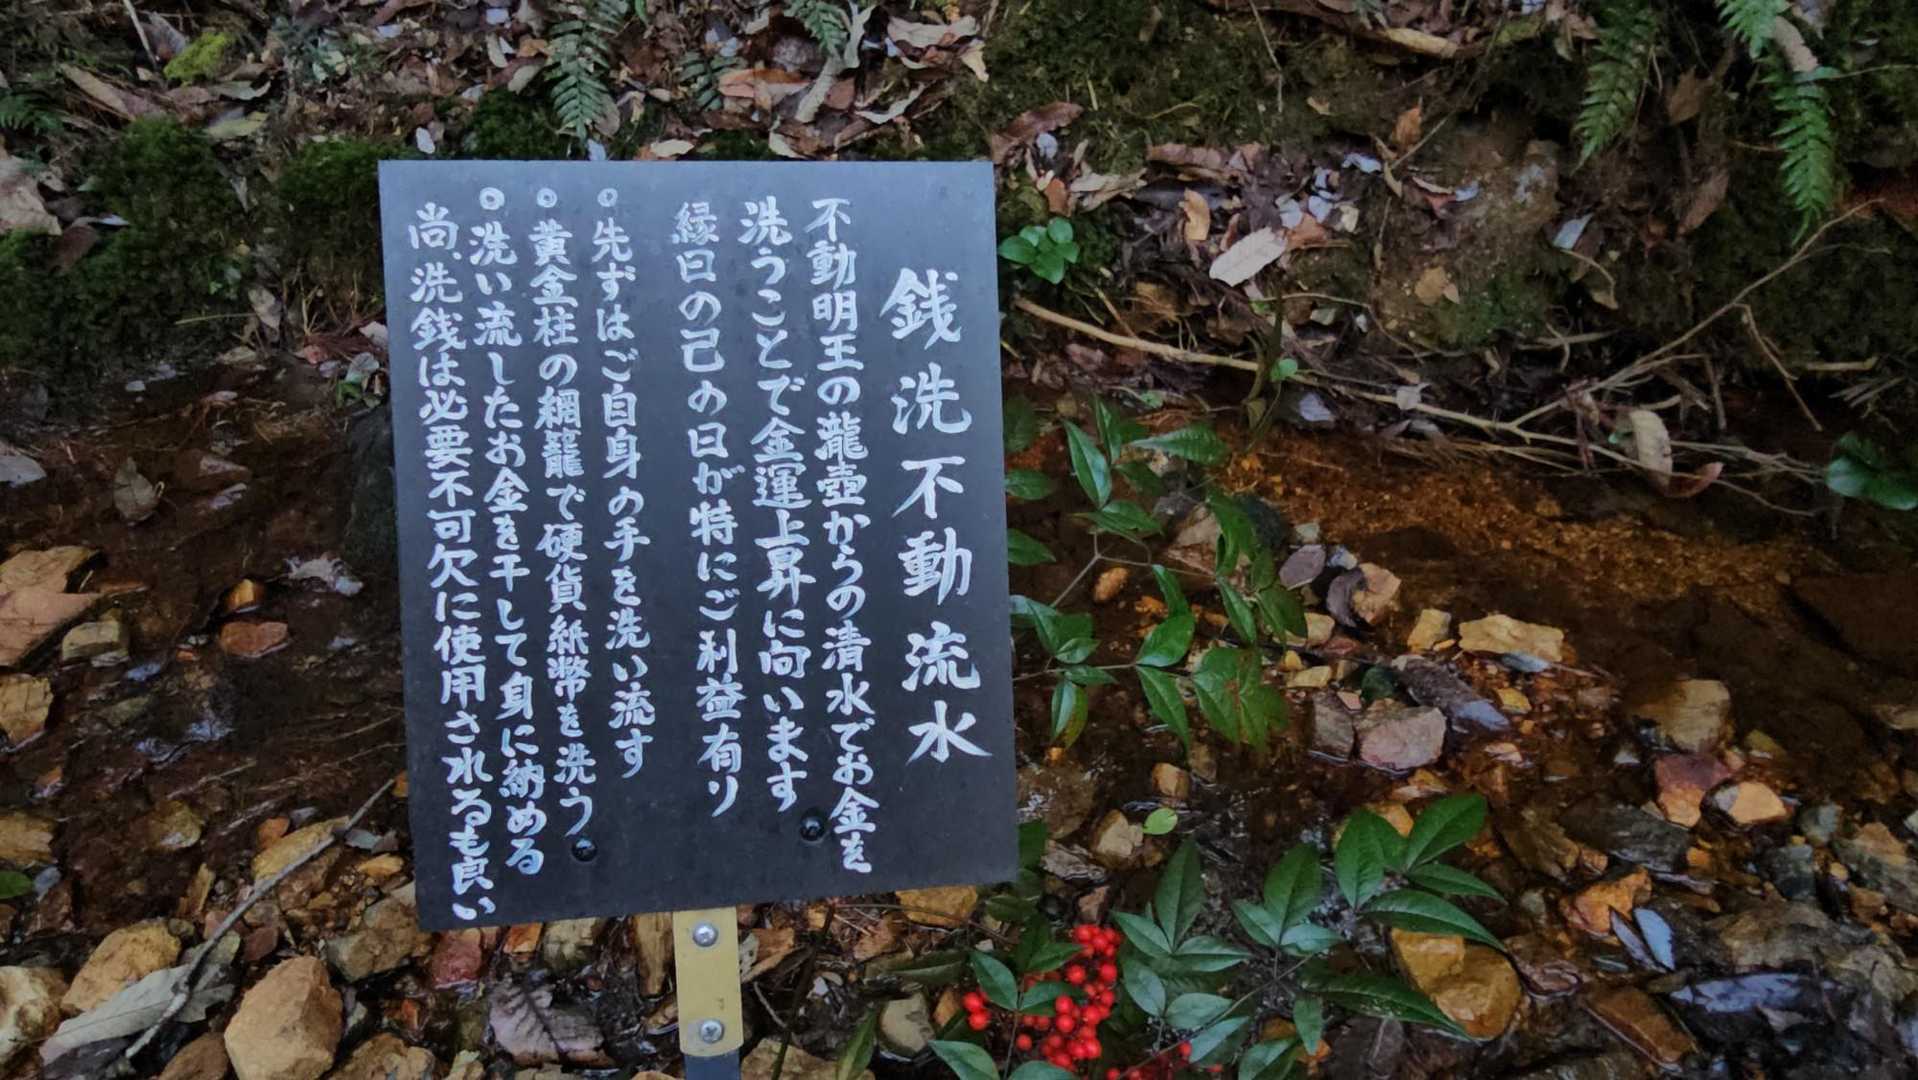 銭洗不動流水
不動明王の瀧壺からの清水でお金を
洗うことで金運上昇に向います
縁日の己の日が特にご利益有り
○先ずはご自身の手を洗い流す
○黄金柱の網籠で硬貨紙幣を洗う
○洗い流したお金を干して身に納める
尚、洗銭は必要不可欠に使用されるも良い